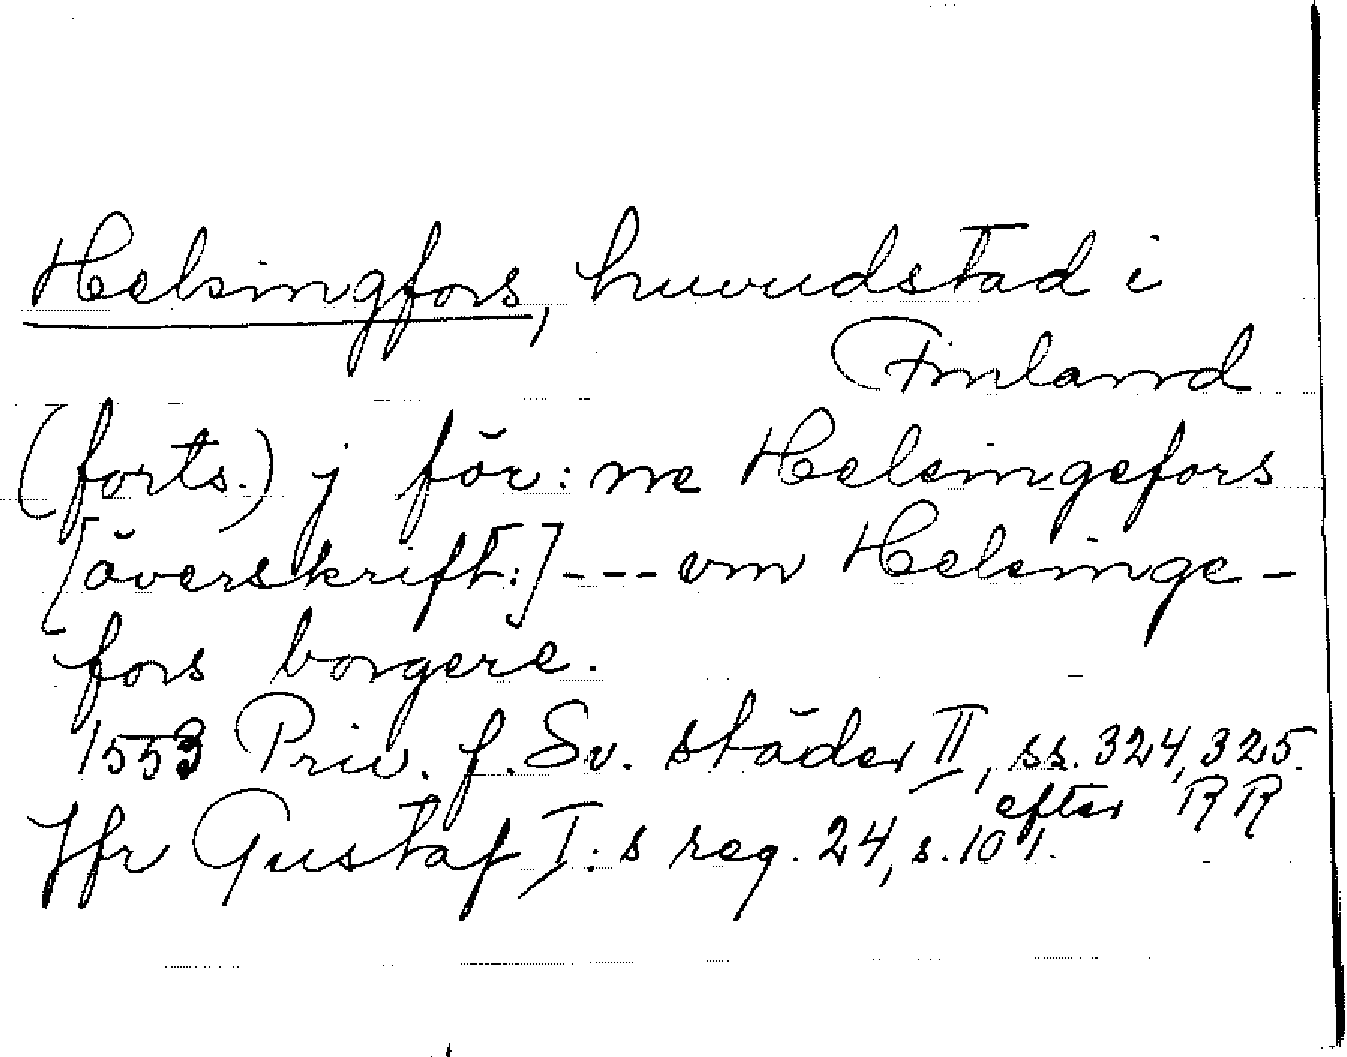 Helsingfors, huvudstad i
Finland
(forts.) j för:ne Helsingefors
[överskrift:] --- om Helsinge-
fors borgere.
1553 Priv. f. Sv. städer II, ss. 324, 325.
efter RR
Jfr Gustaf I:s reg. 24, s. 101.